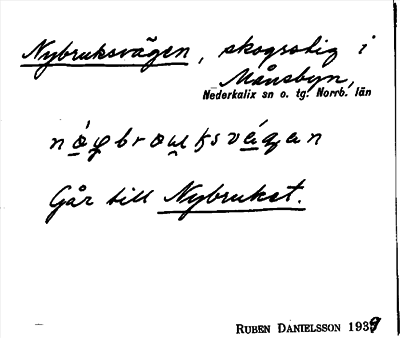 Nybruksvägen, skogsstig i
Månsbyn,
Nederkalix sn o. tg. Norrb. län
Går till Nybruket.
RUBEN DANIELSSON 1939